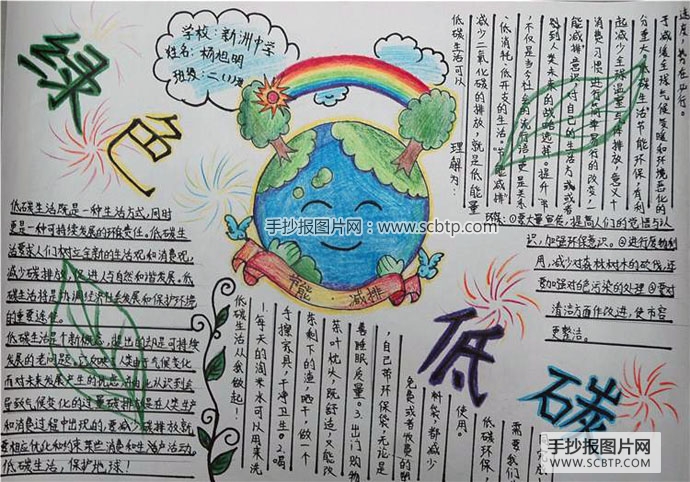 绿色
学校:新洲中学
姓名:杨旭明
班级:二(1)班
低碳生活既是一种生活方式,同时
更是一种可持续发展的环保责任。低碳生
活要求人们树立全新的生活观和消费观,
减少碳排放,促进人与自然和谐发展。低
碳生活将是协调经济社会发展和保护环境
的重要途径。
低碳生活是个新概念,提出的却是可持续
发展的老问题,它反映了人类由于气候变化
而对未来发展产生的忧虑,并由此认识到去
导致气候变化的过量碳排放是在人类生产
和消费过程中出现的,要减少碳排放就
要相应优化和约束某些消费和生活产活动。
低碳生活,保护地球!
手抄报图片网:
www.scbtp.com
节能 减排
速度,势在必行。
于减缓全球气候变暖和环境恶化的
减少二氧化碳的排放,就是低能量
、低消耗、低开支的生活。"节能减排"
,不仅是当今社会的流行语,更是关系
到人类未来的战略选择。提升"节
能减排"意识,对自己的生活方式或者
消费习惯进行简单易行的改变,一
起减少全球温室气体排放,意义十
分重大。"低碳生活"节能环保,有利
低碳生活可以
理解为:
环保:①要大量宣传,提高人们的觉悟与认
识,加强环保意识。②进行废物利
用,减少对森林树木的砍伐,还
要加强对白色污染的处理③要对
清洁方面作改进,使市容
更整洁。
低碳
低碳生活从我做起!
1.每天的淘米水可以用来洗
手擦家具,干净卫生。2.喝
茶剩下的渣,晒干,做一个
茶叶枕头,既舒适,又能改
善睡眠质量。3.出门购物
,自己带环保袋,无论是
免费或者收费的塑
料袋,都减少
使用。
低碳环保,
需要我们
手抄报图片网
WWW.SCBTP.COM